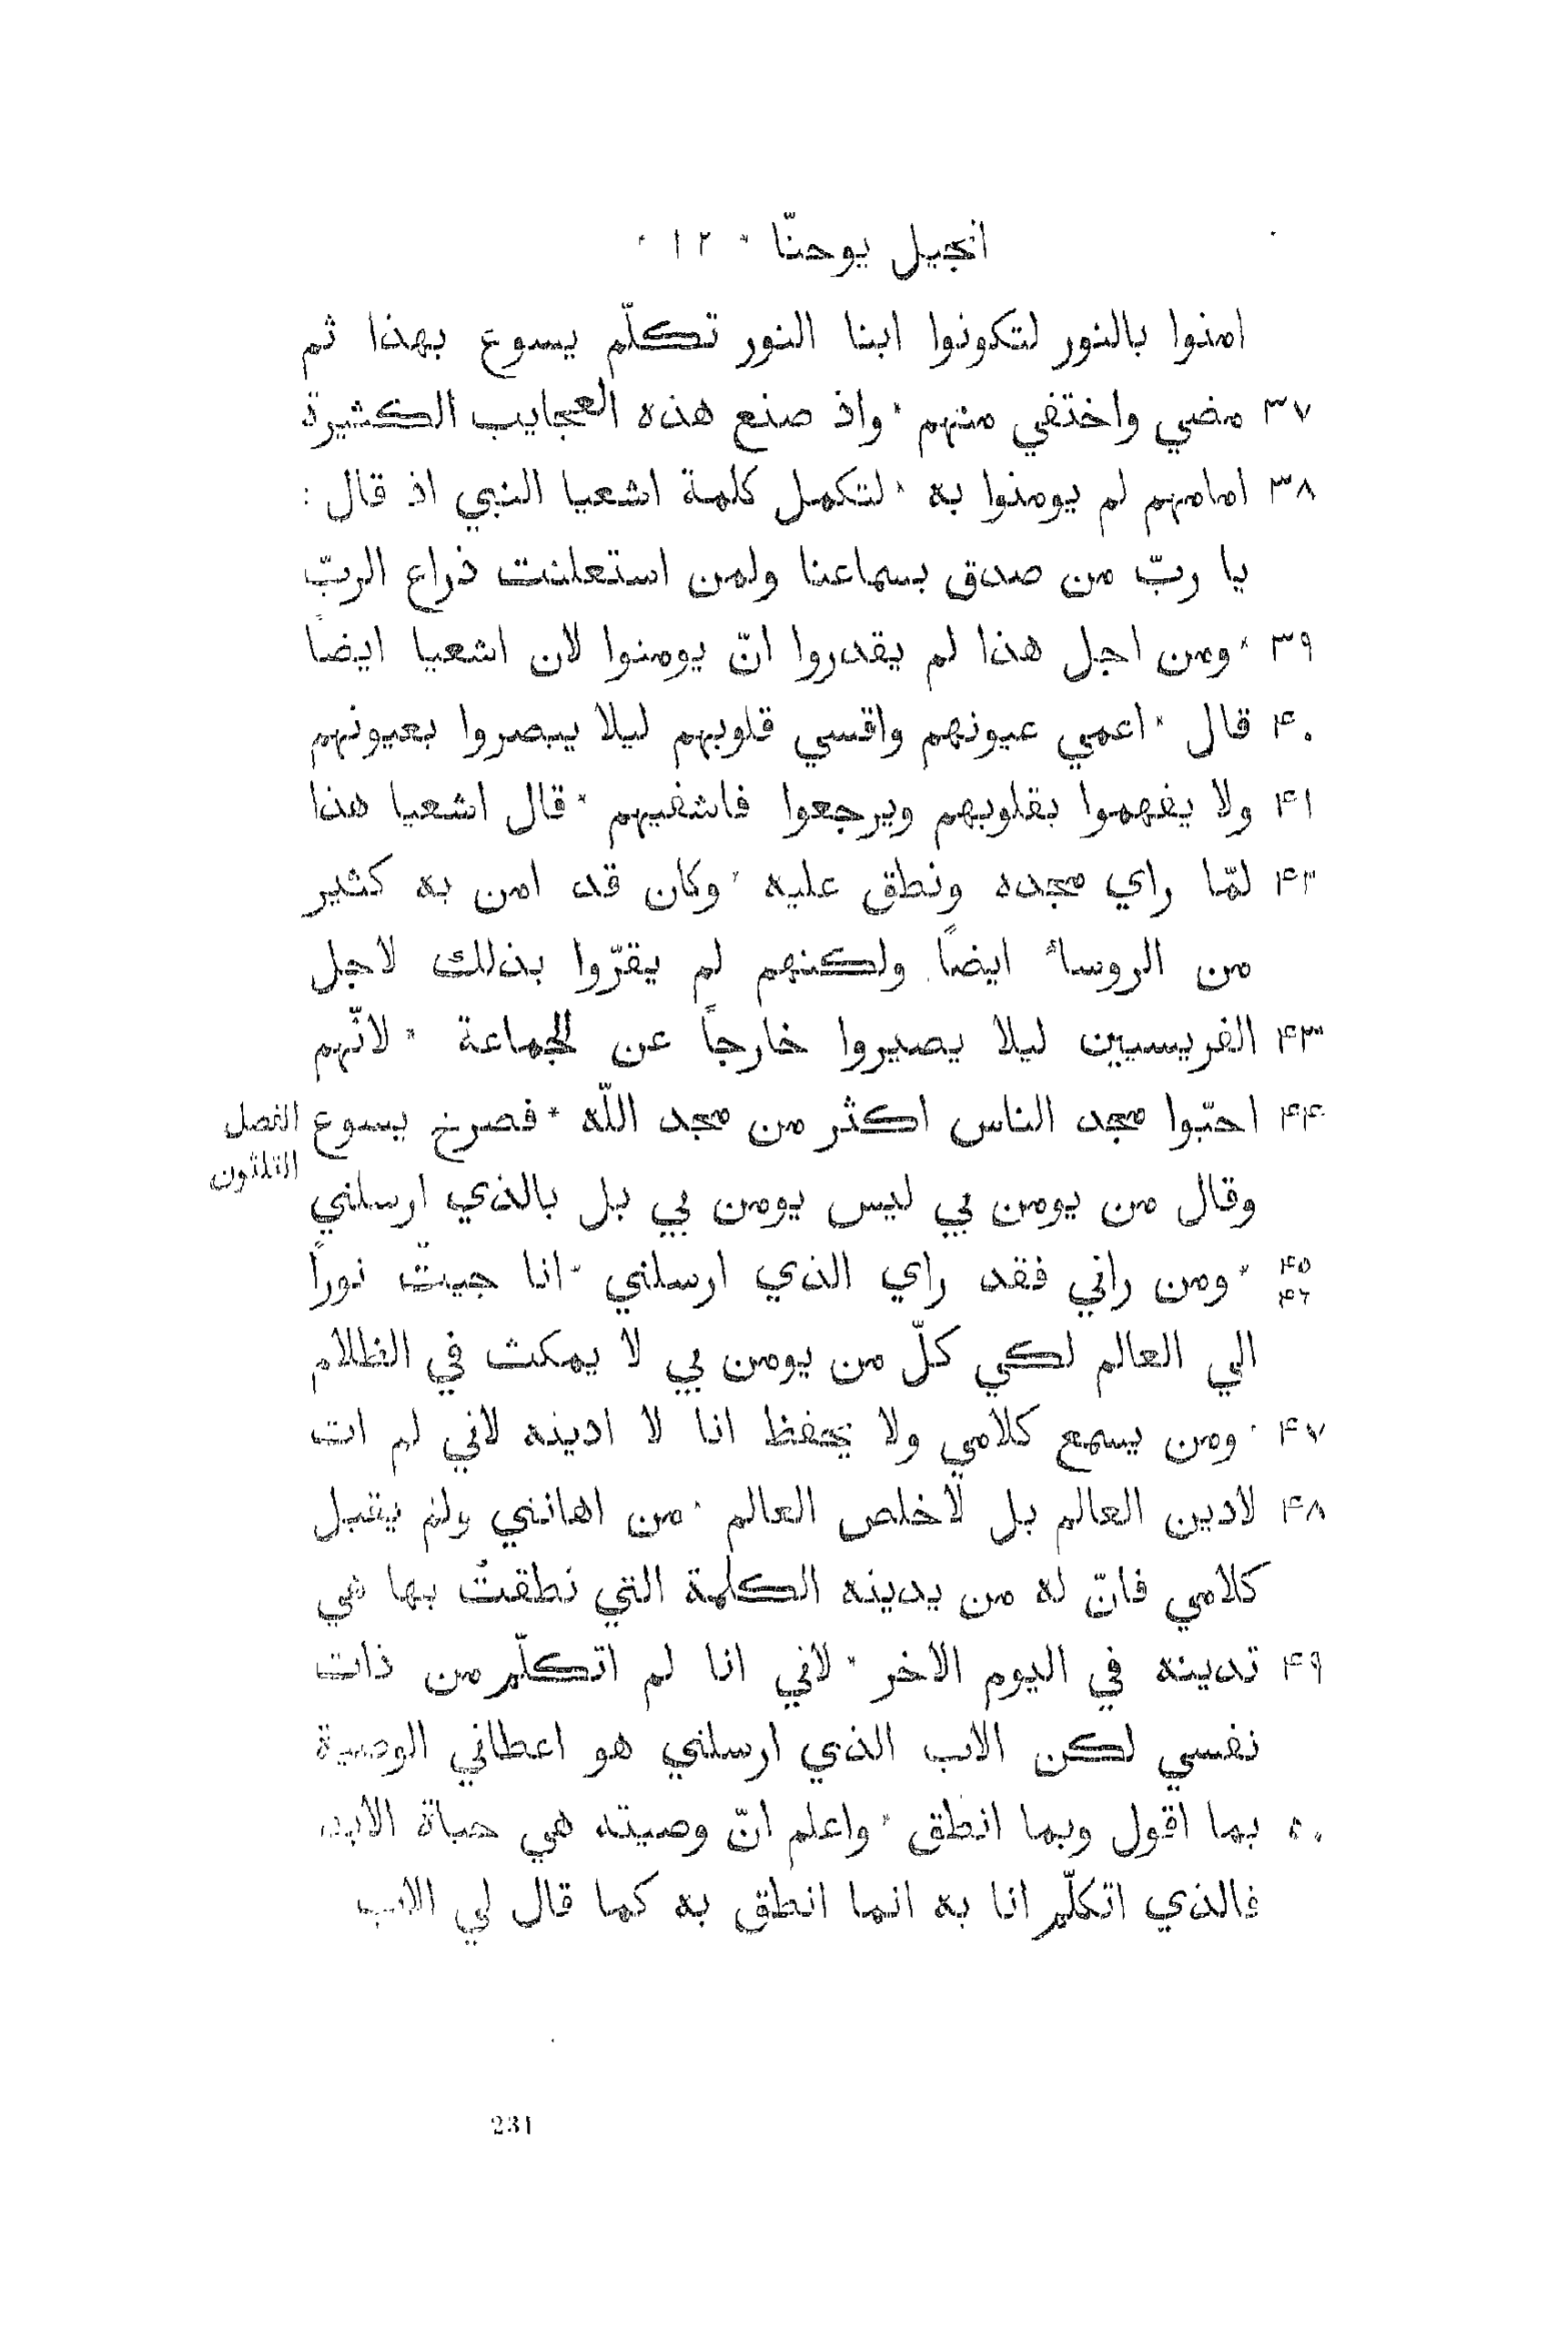 انجيل يوحنّا * ١٢ *
امنوا بالنور لتكونوا ابنا النور تكلّم يسوع بهذا ثم
٣٧ مضي واختفي منهم * واذ صنع هذه العجايب الكثيرة
٣٨ امامهم لم يومنوا به * لتكمل كلمة اشعيا النبي اذ قال :
يا ربّ من صدق بسماعنا ولمن استعلنت ذراع الربّ
٣٩ * ومن اجل هذا لم يقدروا انّ يومنوا لان اشعيا ايضاً
۴٠ قال * اعمي عيونهم واقسي قلوبهم ليلا يبصروا بعيونهم
۴١ ولا يفهموا بقلوبهم ويرجعوا فاشفيهم * قال اشعيا هذا
۴٢ لمّا راي مجده ونطق عليه * وكان قد امن به كثير
من الروساء ايضاً ولكنهم لم يقرّوا بذلك لاجل
۴٣ الفريسيين ليلا يصيروا خارجاً عن الجماعة * لانّهم
۴۴ احبّوا مجد الناس اكثر من مجد اللّه * فصرخ يسوع
الفصل
الثلثون
وقال من يومن بي ليس يومن بي بل بالذي ارسلني
۴٥ ۴٦ * ومن راني فقد راي الذي ارسلني * انا جيت نوراً
الي العالم لكي كلّ من يومن بي لا يمكث في الظلام
۴٧ * ومن يسمع كلامي ولا يحفظ انا لا ادينه لاني لم ات
۴٨ لادين العالم بل لاخلص العالم * من اهانني ولم يقبل
كلامي فانّ له من يدينه الكلمة التي نطقتُ بها هي
۴٩ تدينه في اليوم الاخر * لاني انا لم اتكلّم من ذات
نفسي لكن الاب الذي ارسلني هو اعطاني الوصية
٥٠ بما اقول وبما انطق * واعلم انّ وصيته هي حياة الابد
فالذي اتكلّم انا به انما انطق به كما قال لي الاب
231